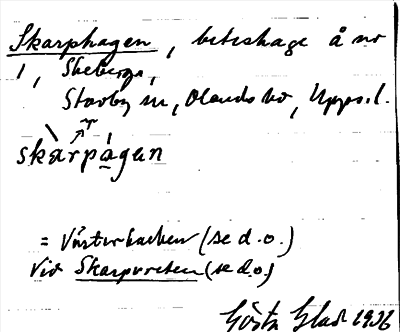 Skarphagen, beteshage å nr
1, Skeberga,
Stavby sn, Olands hd, Upps. l.
skàrpágen
= Västerbacken (se d.o.)
Vid Skarpvreten (se d.o.)
Gösta Glad 1936